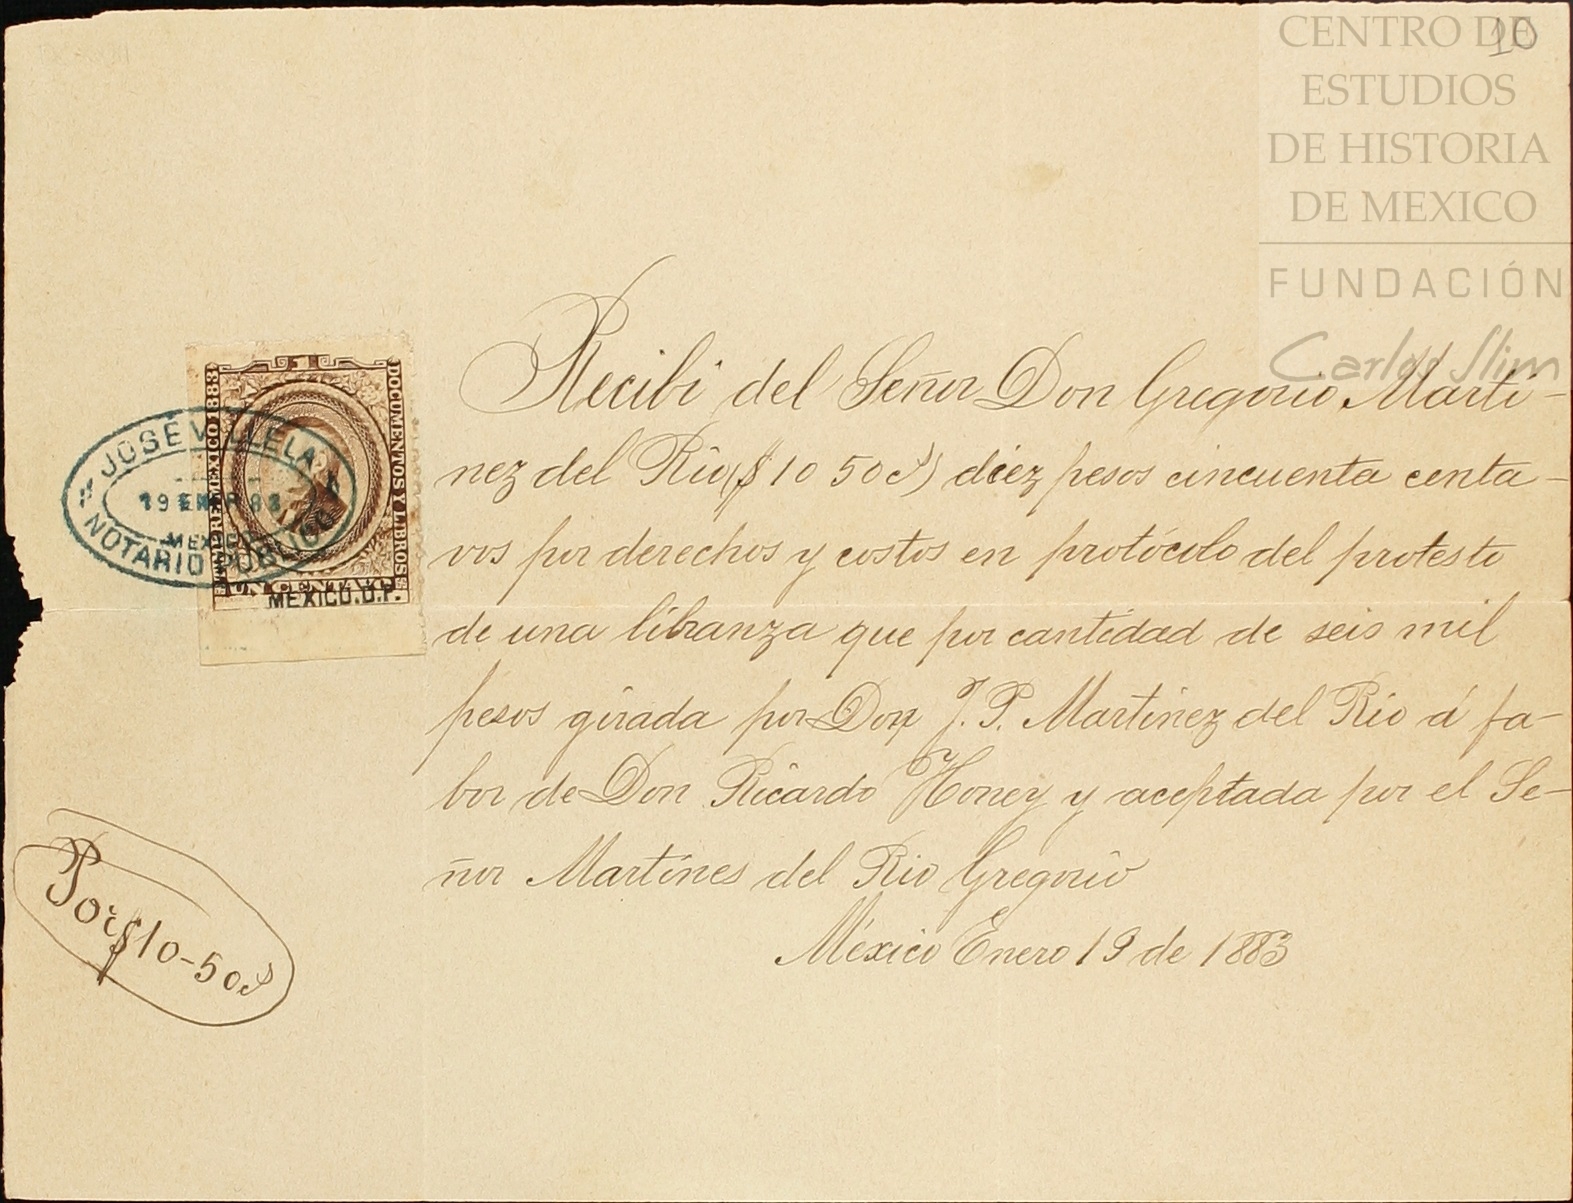 10
CENTRO DE
ESTUDIOS
DE HISTORIA
DE MEXICO
FUNDACIÓN
Carlos Slim
Recibi del Señor Don Gregorio Marti-
nez del Rio ($10 50cs) diez pesos cincuenta centa-
vos por derechos y costos en protócolo del protesto
de una libranza que por cantidad de seis mil
pesos girada por Don J. P. Martinez del Rio á fa-
bor de Don Ricardo Honey y aceptada por el Se-
ñor Martines del Rio Gregorio
México Enero 19 de 1883
DOCUMENTOS Y LIBROS
TIMBRE MEXICO 1883
UN CENTAVO
MEXICO.D.F.
JOSE VILLELA
19 ENER 83
MEXICO
NOTARIO PUBLICO
Por $10-50cs